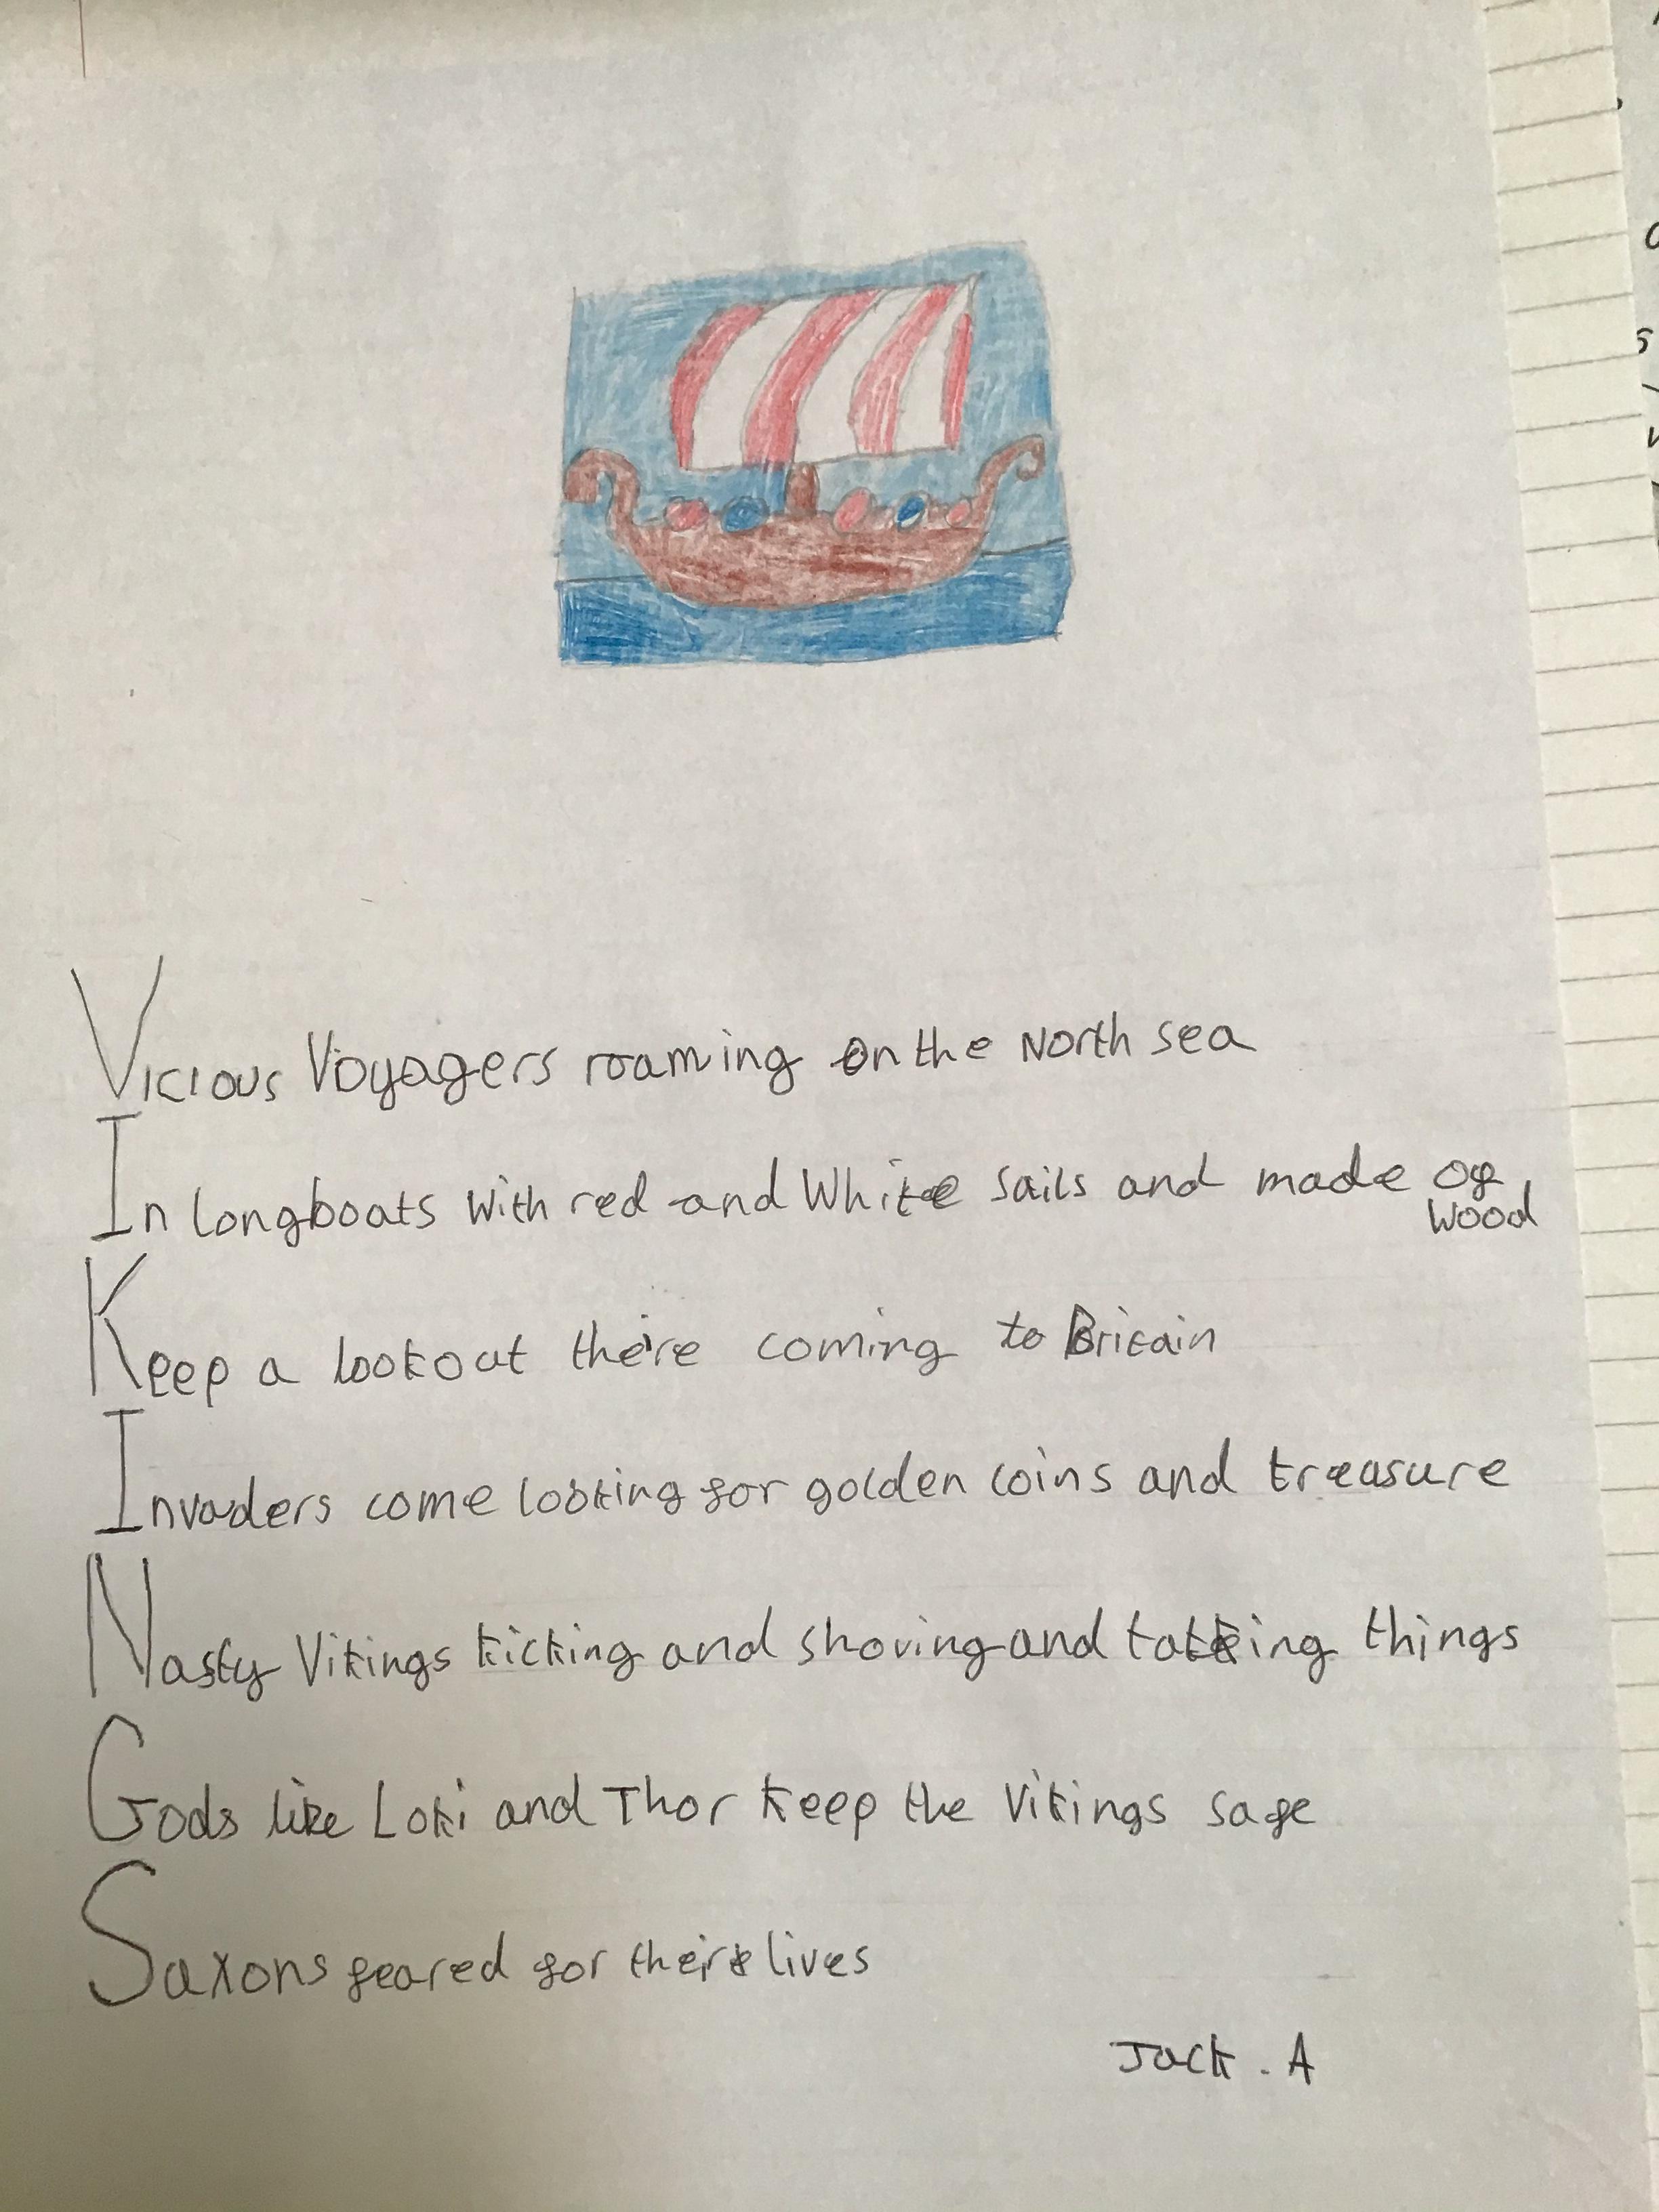 Vicious Voyagers roaming on the North sea
In longboats with red and White sails and made of
wood
Keep a lookout the're coming to Britain
Invaders come looking for golden coins and treasure
Nasty Vikings kicking and shoving and taking things
Gods like Loki and Thor keep the Vikings safe
Saxons feared for their lives
Jack . A